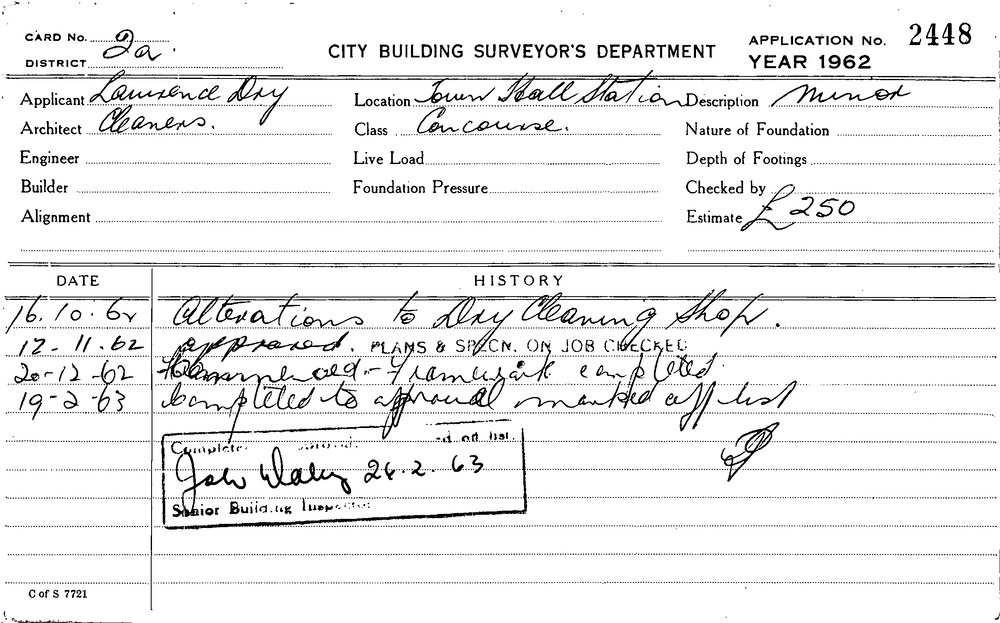 CARD No. 2a.
DISTRICT
CITY BUILDING SURVEYOR'S DEPARTMENT
APPLICATION No. 2448
YEAR 1962
Applicant Lawrence Dry
Location Town Hall Station
Description Minor
Architect Cleaners.
Class Concourse.
Nature of Foundation
Engineer
Live Load
Depth of Footings
Builder
Foundation Pressure
Checked by
Alignment
Estimate £ 250
DATE HISTORY
16.10.62 Alterations to Dry Cleaning Shop.
12-11.62 approved. PLANS & SPECN. ON JOB CHECKED
20-12-62 Commenced - Framework completed
19-2-63 Completed to approval marked off list
off list.
John 26.2.63
Senior Building Inspector
C of S 7721